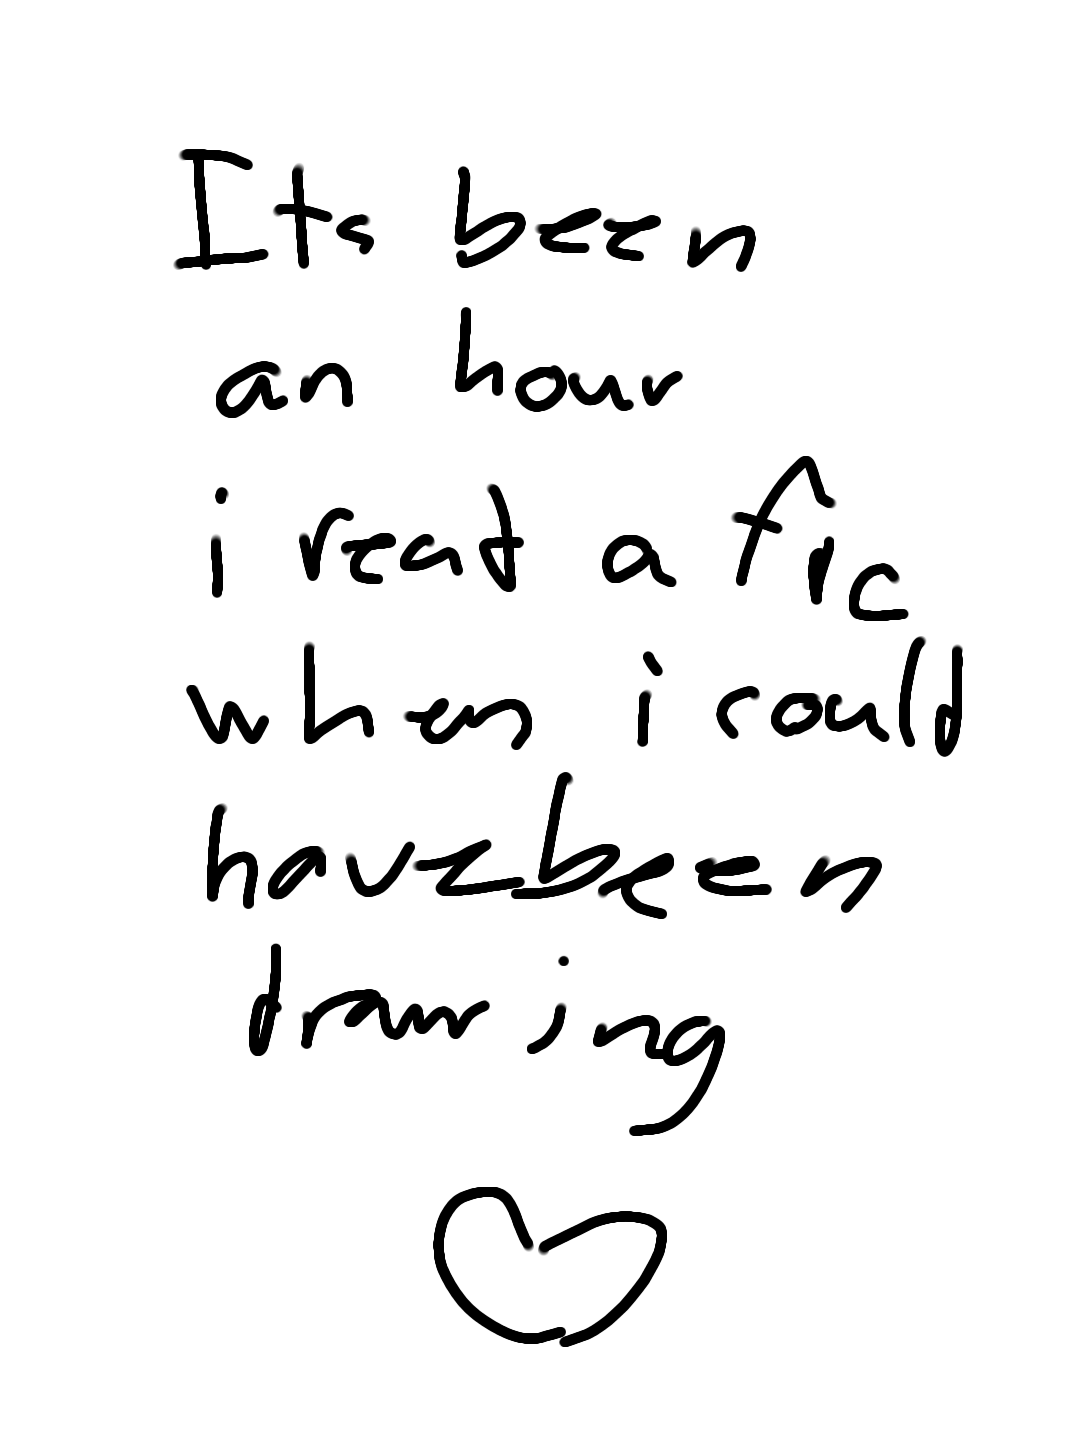 Its been
an hour
i read a fic
when i could
have been
drawing